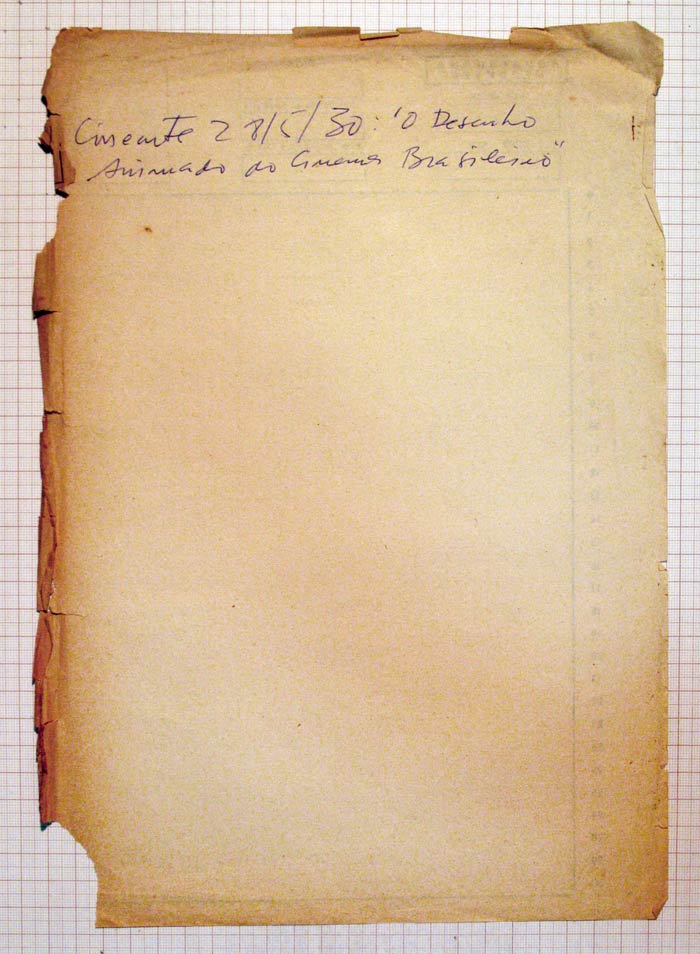 Cinearte 28/5/30: "O Desenho
Animado do Cinema Brasileiro"